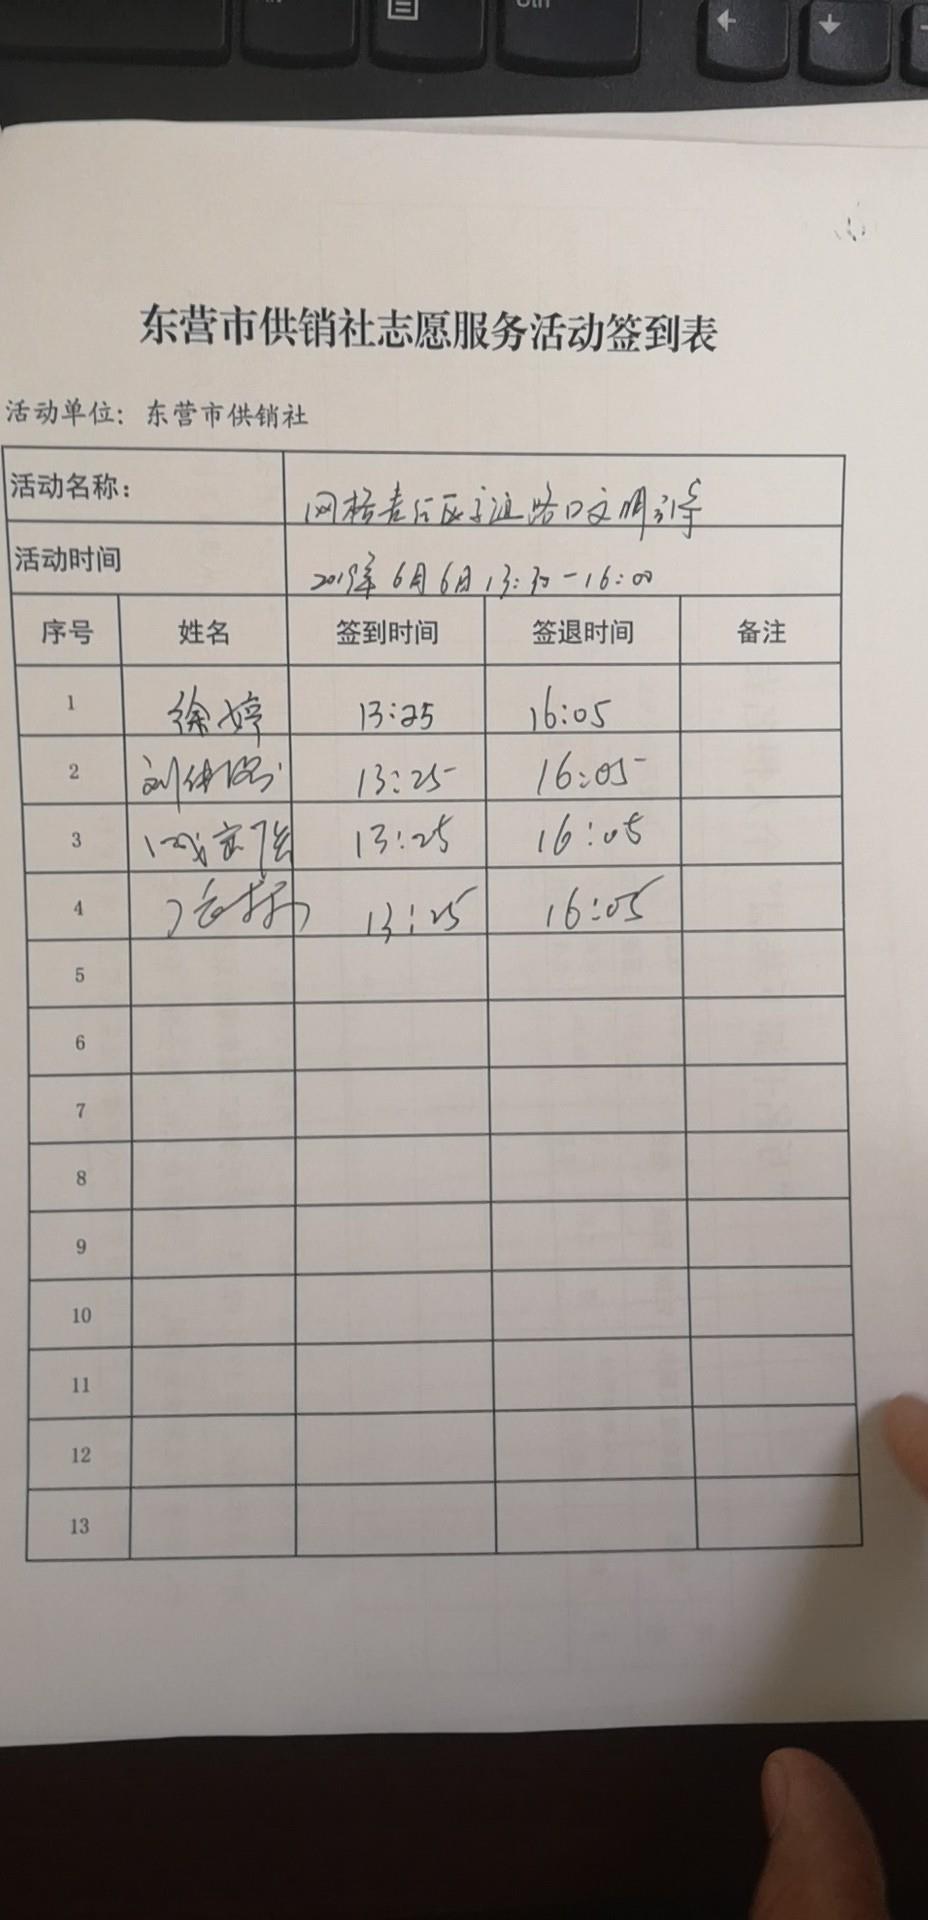 东营市供销社志愿服务活动签到表
活动单位：东营市供销社
活动名称： 网格责任区交通路口文明引导
活动时间 2019年6月6日13:30-16:00
序号 姓名 签到时间 签退时间 备注
1 徐婷 13:25 16:05
2 刘 13:25 16:05
3 13:25 16:05
4 13:25 16:05
5
6
7
8
9
10
11
12
13